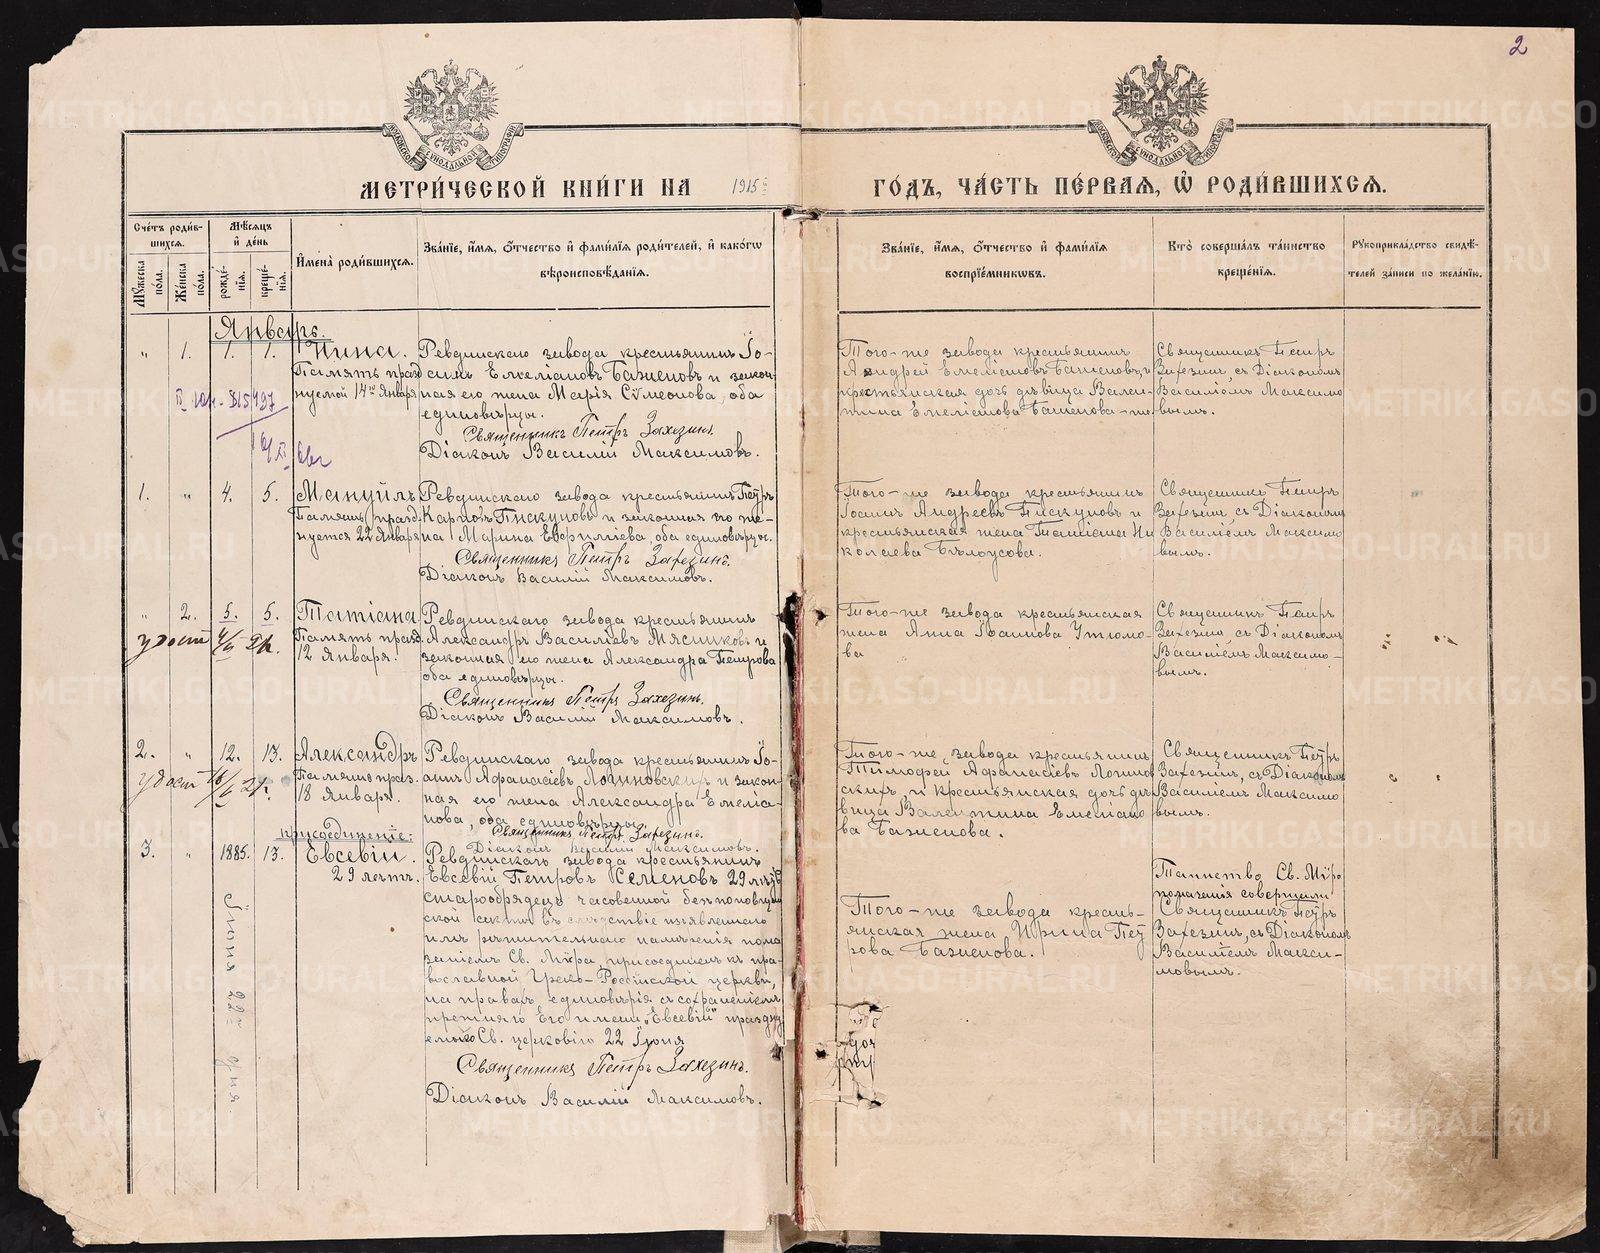 2
МОСКОВСКОЙ СѴНОДАЛЬНОЙ ТИПОГРАФІИ
МОСКОВСКОЙ СѴНОДАЛЬНОЙ ТИПОГРАФІИ
МЕТРИ́ЧЕСКОЙ КНИ́ГИ НА 1915 ГО́ДЪ, ЧА́СТЬ ПЕ́РВАѦ, Ѽ РОДИ́ВШИХСѦ.
Сче́тъ роди́в-
шихсѧ.
Мꙋжеска по́ла.
Же́нска по́ла.
Мѣ́сѧцъ
и҆ де́нь
рожде́-
нїѧ.
креще́-
нїѧ.
И҆мена̀ роди́вшихсѧ.
Зва́нїе, и҆́мѧ, ѻ҆́тчество и҆ фами́лїѧ роди́телей, и҆ како́гѡ
вѣроисповѣ́данїѧ.
Зва́нїе, и҆́мѧ, ѻ҆́тчество и҆ фами́лїѧ
воспрїе́мникѡвъ.
Кто̀ соверша́лъ та́инство
креще́нїѧ.
Рꙋкоприкла́дство свидѣ́-
телей за́писи по жела́нїю.
Январь.
„ 1. 1. 1. Нина.
Память празд
нуемой 14го Января
Ревдинскаго завода крестьянинъ Іо-
сифъ Емеліановъ Баженовъ и закон
ная его жена Марія Сѵмеонова, оба
единовѣрцы.
Священникъ Петръ Захезинъ.
Діаконъ Василій Максимовъ.
Того-же завода крестьянинъ
Андрей Емеліановъ Баженовъ и
крестьянская дочь дѣвица Вален-
тина Емеліанова Баженова
Священникъ Петръ
Захезинъ, съ Діакономъ
Василіемъ Максимо
вымъ.
1. „ 4. 5. Мануилъ
Память празд.
нуется 22 Января
Ревдинскаго завода крестьянинъ Петръ
Карповъ Пискуновъ и законная его же-
на Марина Евфиміева, оба единовѣрцы.
Священникъ Петръ Захезинъ.
Діаконъ Василій Максимовъ.
Того-же завода крестьянинъ
Іоаннъ Андреевъ Пискуновъ и
крестьянская жена Татіана Ни
колаева Бѣлоусова.
Священникъ Петръ
Захезинъ, съ Діакономъ
Василіемъ Максимо
вымъ.
„ 2. 5. 5. Татіана
Память празд.
12 Января.
удост
Ревдинскаго завода крестьянинъ
Александръ Василіевъ Мясниковъ и
законная его жена Александра Петрова
оба единовѣрцы.
Священникъ Петръ Захезинъ.
Діаконъ Василій Максимовъ.
Того-же завода крестьянская
жена Анна Іоаннова Утюмо-
ва
Священникъ Петръ
Захезинъ, съ Діакономъ
Василіемъ Максимо-
вымъ.
2. „ 12. 13. Александръ
Память праз.
18 Января.
удост
Ревдинскаго завода крестьянинъ Іо-
аннъ Афанасіевъ Логиновскихъ и закон-
ная его жена Александра Емеліа-
нова, оба единовѣрцы.
Священникъ Петръ Захезинъ.
Діаконъ Василій Максимовъ.
Того-же завода крестьянинъ
Тимофей Афанасіевъ Логинов
скихъ и крестьянская дочь дѣ
вица Валентина Емеліано
ва Баженова.
Священникъ Петръ
Захезинъ, съ Діакономъ
Василіемъ Максимо
вымъ.
присоединеніе:
3. „ 1885. 13. Евсевій.
29 лѣтъ.
Іюня 22го дня.
Ревдинскаго завода крестьянинъ
Евсевій Петровъ Семеновъ 29 лѣтъ
старообрядецъ часовенной безпоповщин
ской секты въ слѣдствіе изъявленнаго
имъ рѣшительнаго намѣренія пома
заніемъ Св. Мѵра, присоединенъ къ пра-
вославной Греко-Россійской церкви,
на правахъ единовѣрія съ сохраненіемъ
прежняго Его имени „Евсевій" праздну
емаго Св. церковію 22 Іюня
Священникъ Петръ Захезинъ.
Діаконъ Василій Максимовъ.
Того-же завода кресть-
янская жена Ирина Пет
рова Баженова.
Таинство Св. Мѵро
помазанія совершили
Священникъ Петръ
Захезинъ, съ Діакономъ
Василіемъ Макси-
мовымъ.
METRIKI.GASO-URAL.RU